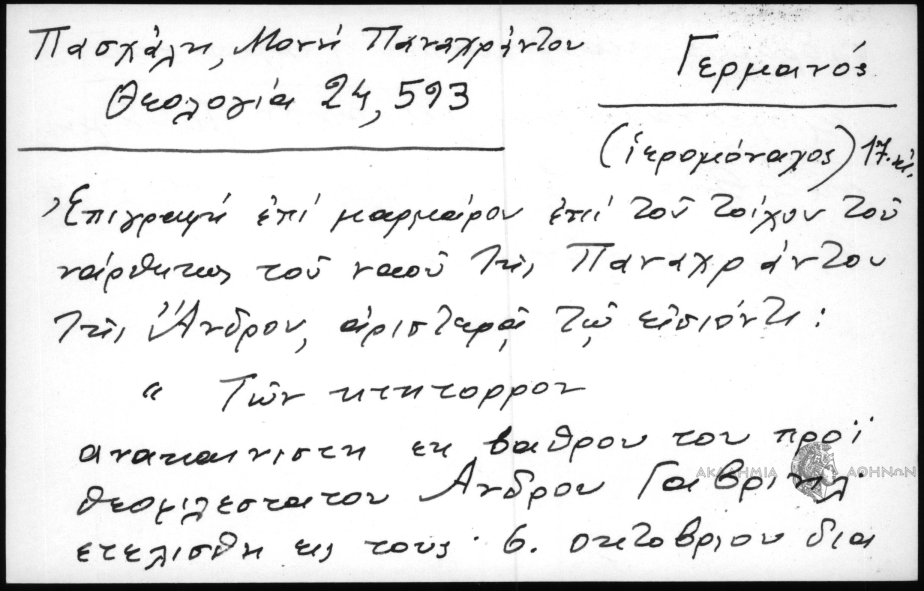 Πασχάλη, Μονή Παναχράντου
Θεολογία 24, 593
Γερμανός
(ἱερομόναχος) 17. αἰ.
Ἐπιγραφή ἐπί μαρμάρου ἐπί τοῦ τοίχου τοῦ
νάρθηκος τοῦ ναοῦ τῆς Παναχράντου
τῆς Ἄνδρου, ἀριστερᾷ τῷ εἰσιόντι:
" Τῶν κτητορρον
ανακαινιστη εκ βαθρου του προϊ
θεοφιλεστατου Ανδρου Γαβριηλ.
ετελισθη εις τους 6. οκτοβριου δια
ΑΚΑΔΗΜΙΑ ΑΘΗΝΩΝ